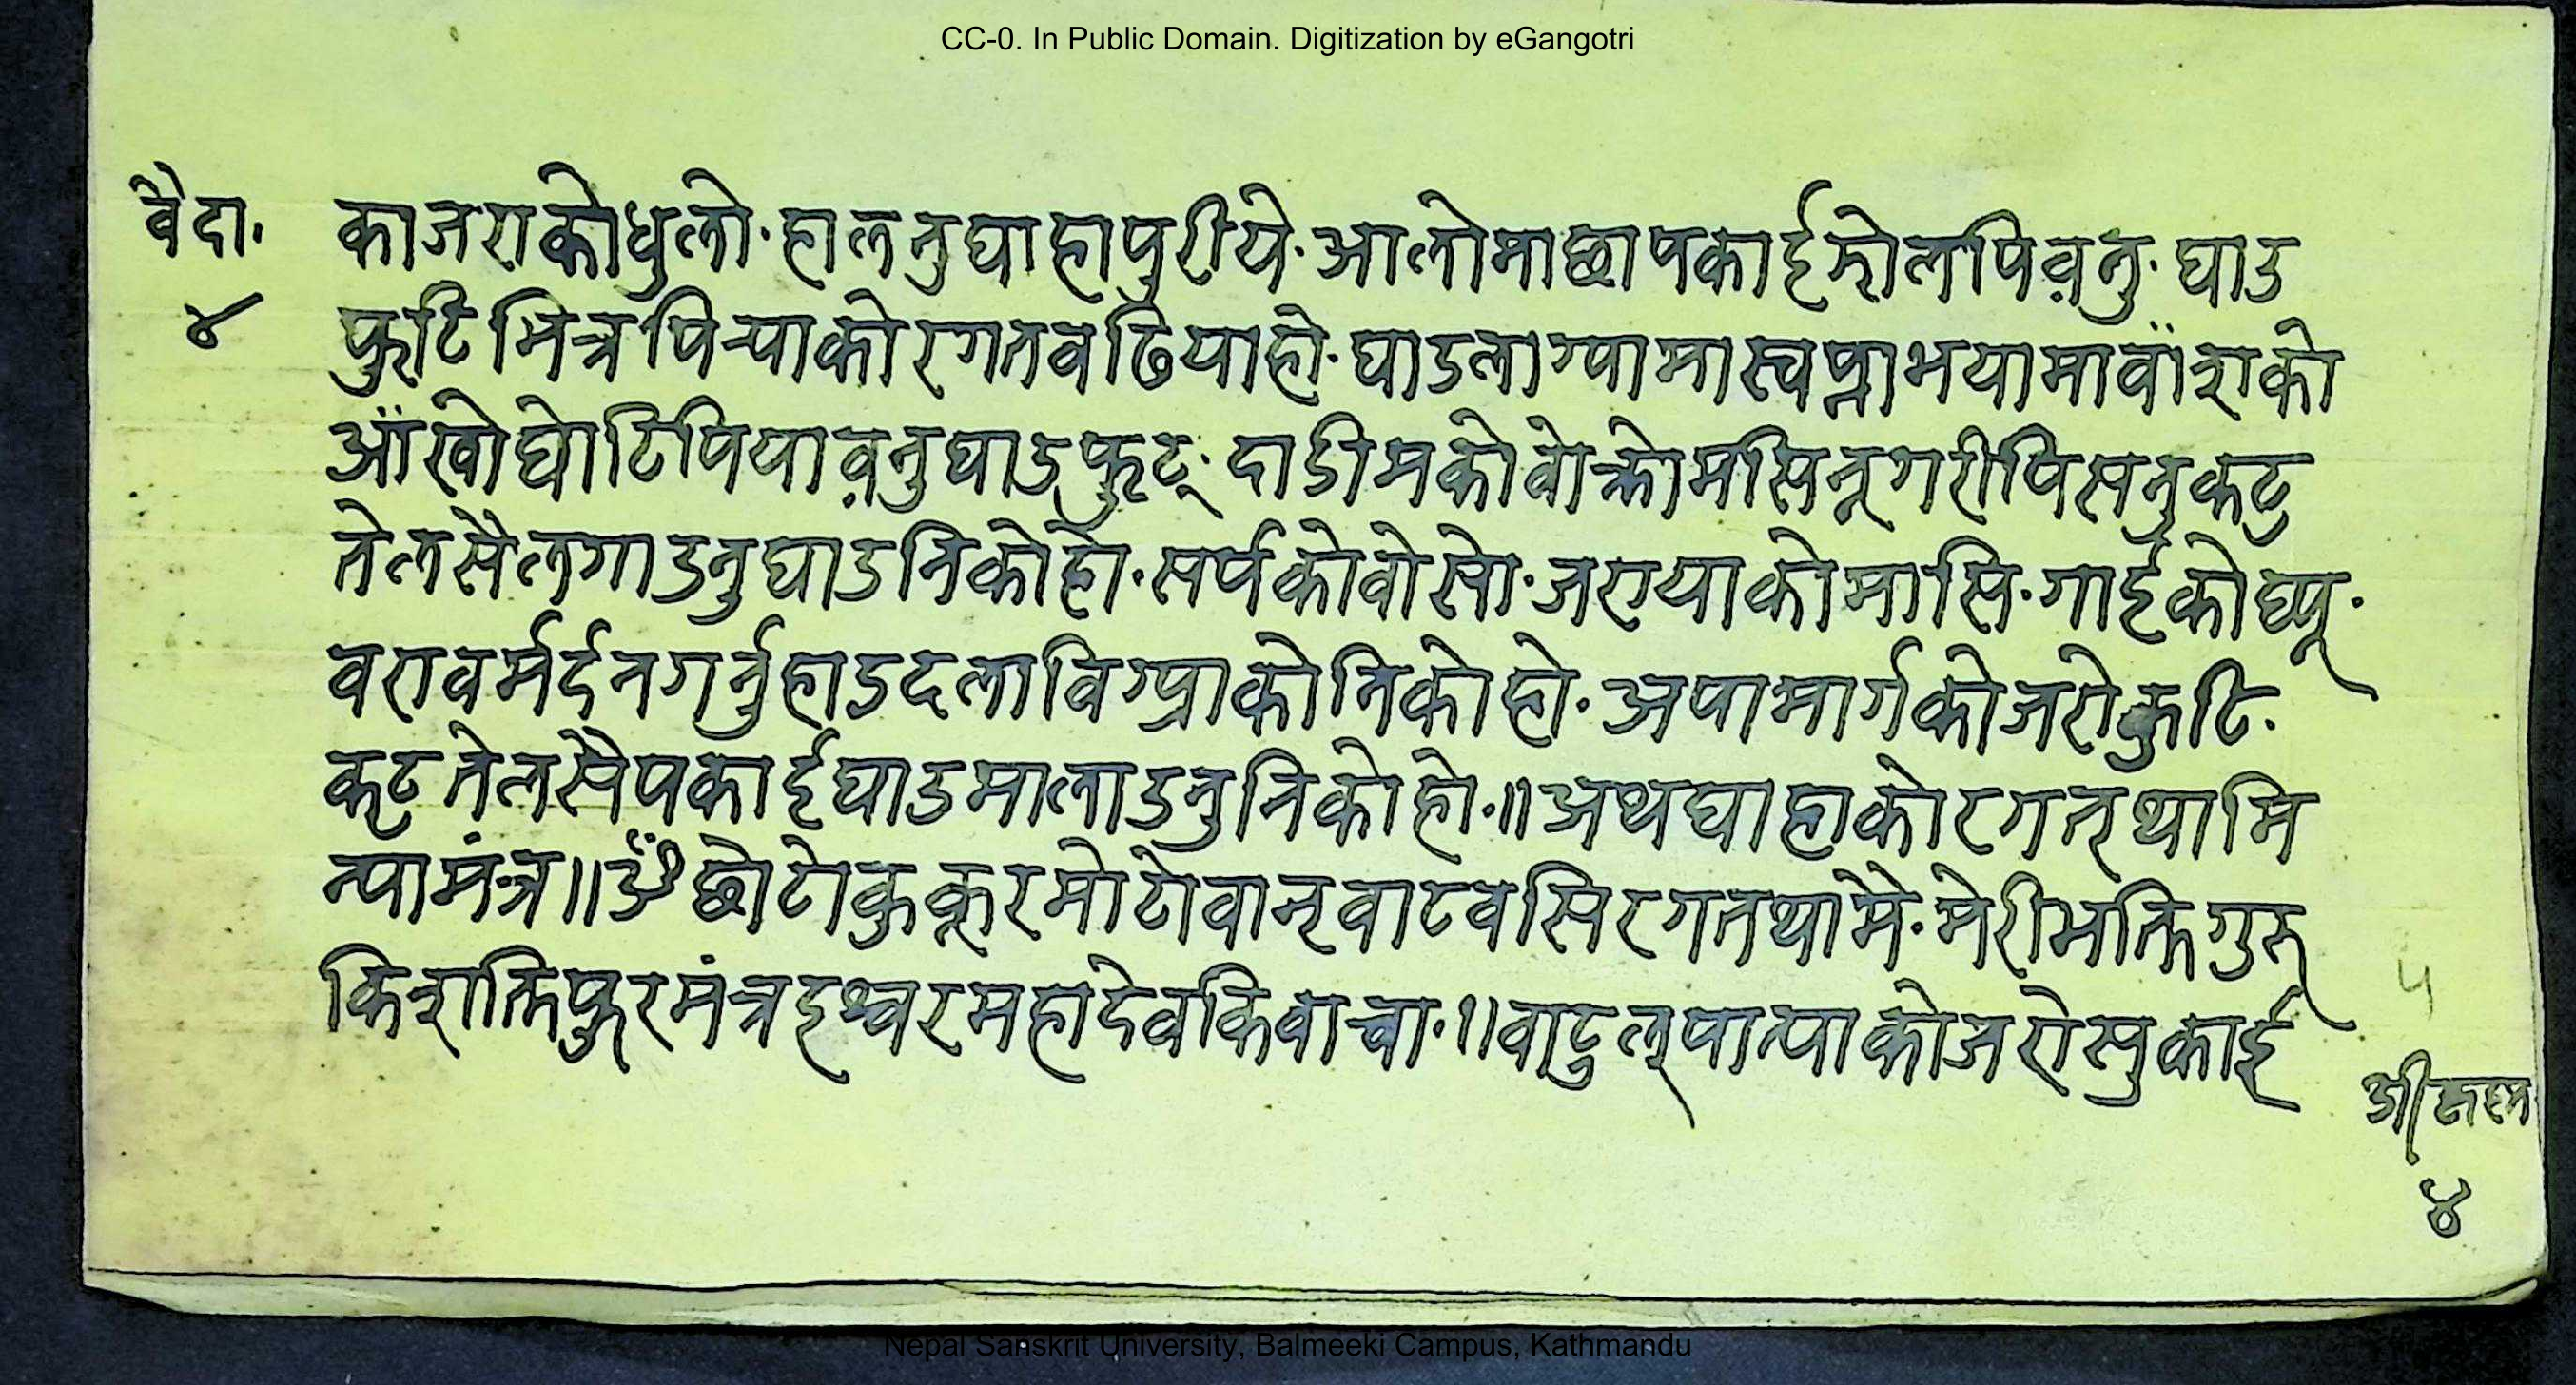 CC-0. In Public Domain. Digitization by eGangotri
वैदा. काजराकोधुलो. हालनुघाहापुरीये. आलोमाछापकाईझोलपिव़नु. घाउ
४ फुटिभित्रपिच्याकोरगतवढियाहो. घाउलाग्यामास्वप्नाभयामावाँशको
आँखोघोटिपियाव़नुघाउफुट्. दाडीमकोवोक्रोमसिनूगरीपिसनुकटु
तेलसैलगाउनुघाउनिकोहो. सर्पकोवोसो. जरायाकोमासि. गाईकोघ्यू.
वरावर्मर्दनगर्नुहाडदलाविग्र्याकोनिकोहो. अपामार्गकोजरोकुटि.
कटुतेलसैपकाईघाउमालाउनुनिकोहो.॥अथघाहाकोरगत्थामि
न्यामंत्र॥ॐछोटोकुकूरमोटोवान्वाटवसिरगतथामे. मेरीभक्तिगुरू
किशक्तिफुरमंत्रइश्वरमहादेवकिवाचा.॥वाटुल्पात्याकोजरोसुकाई
५
४
Nepal Sanskrit University, Balmeeki Campus, Kathmandu